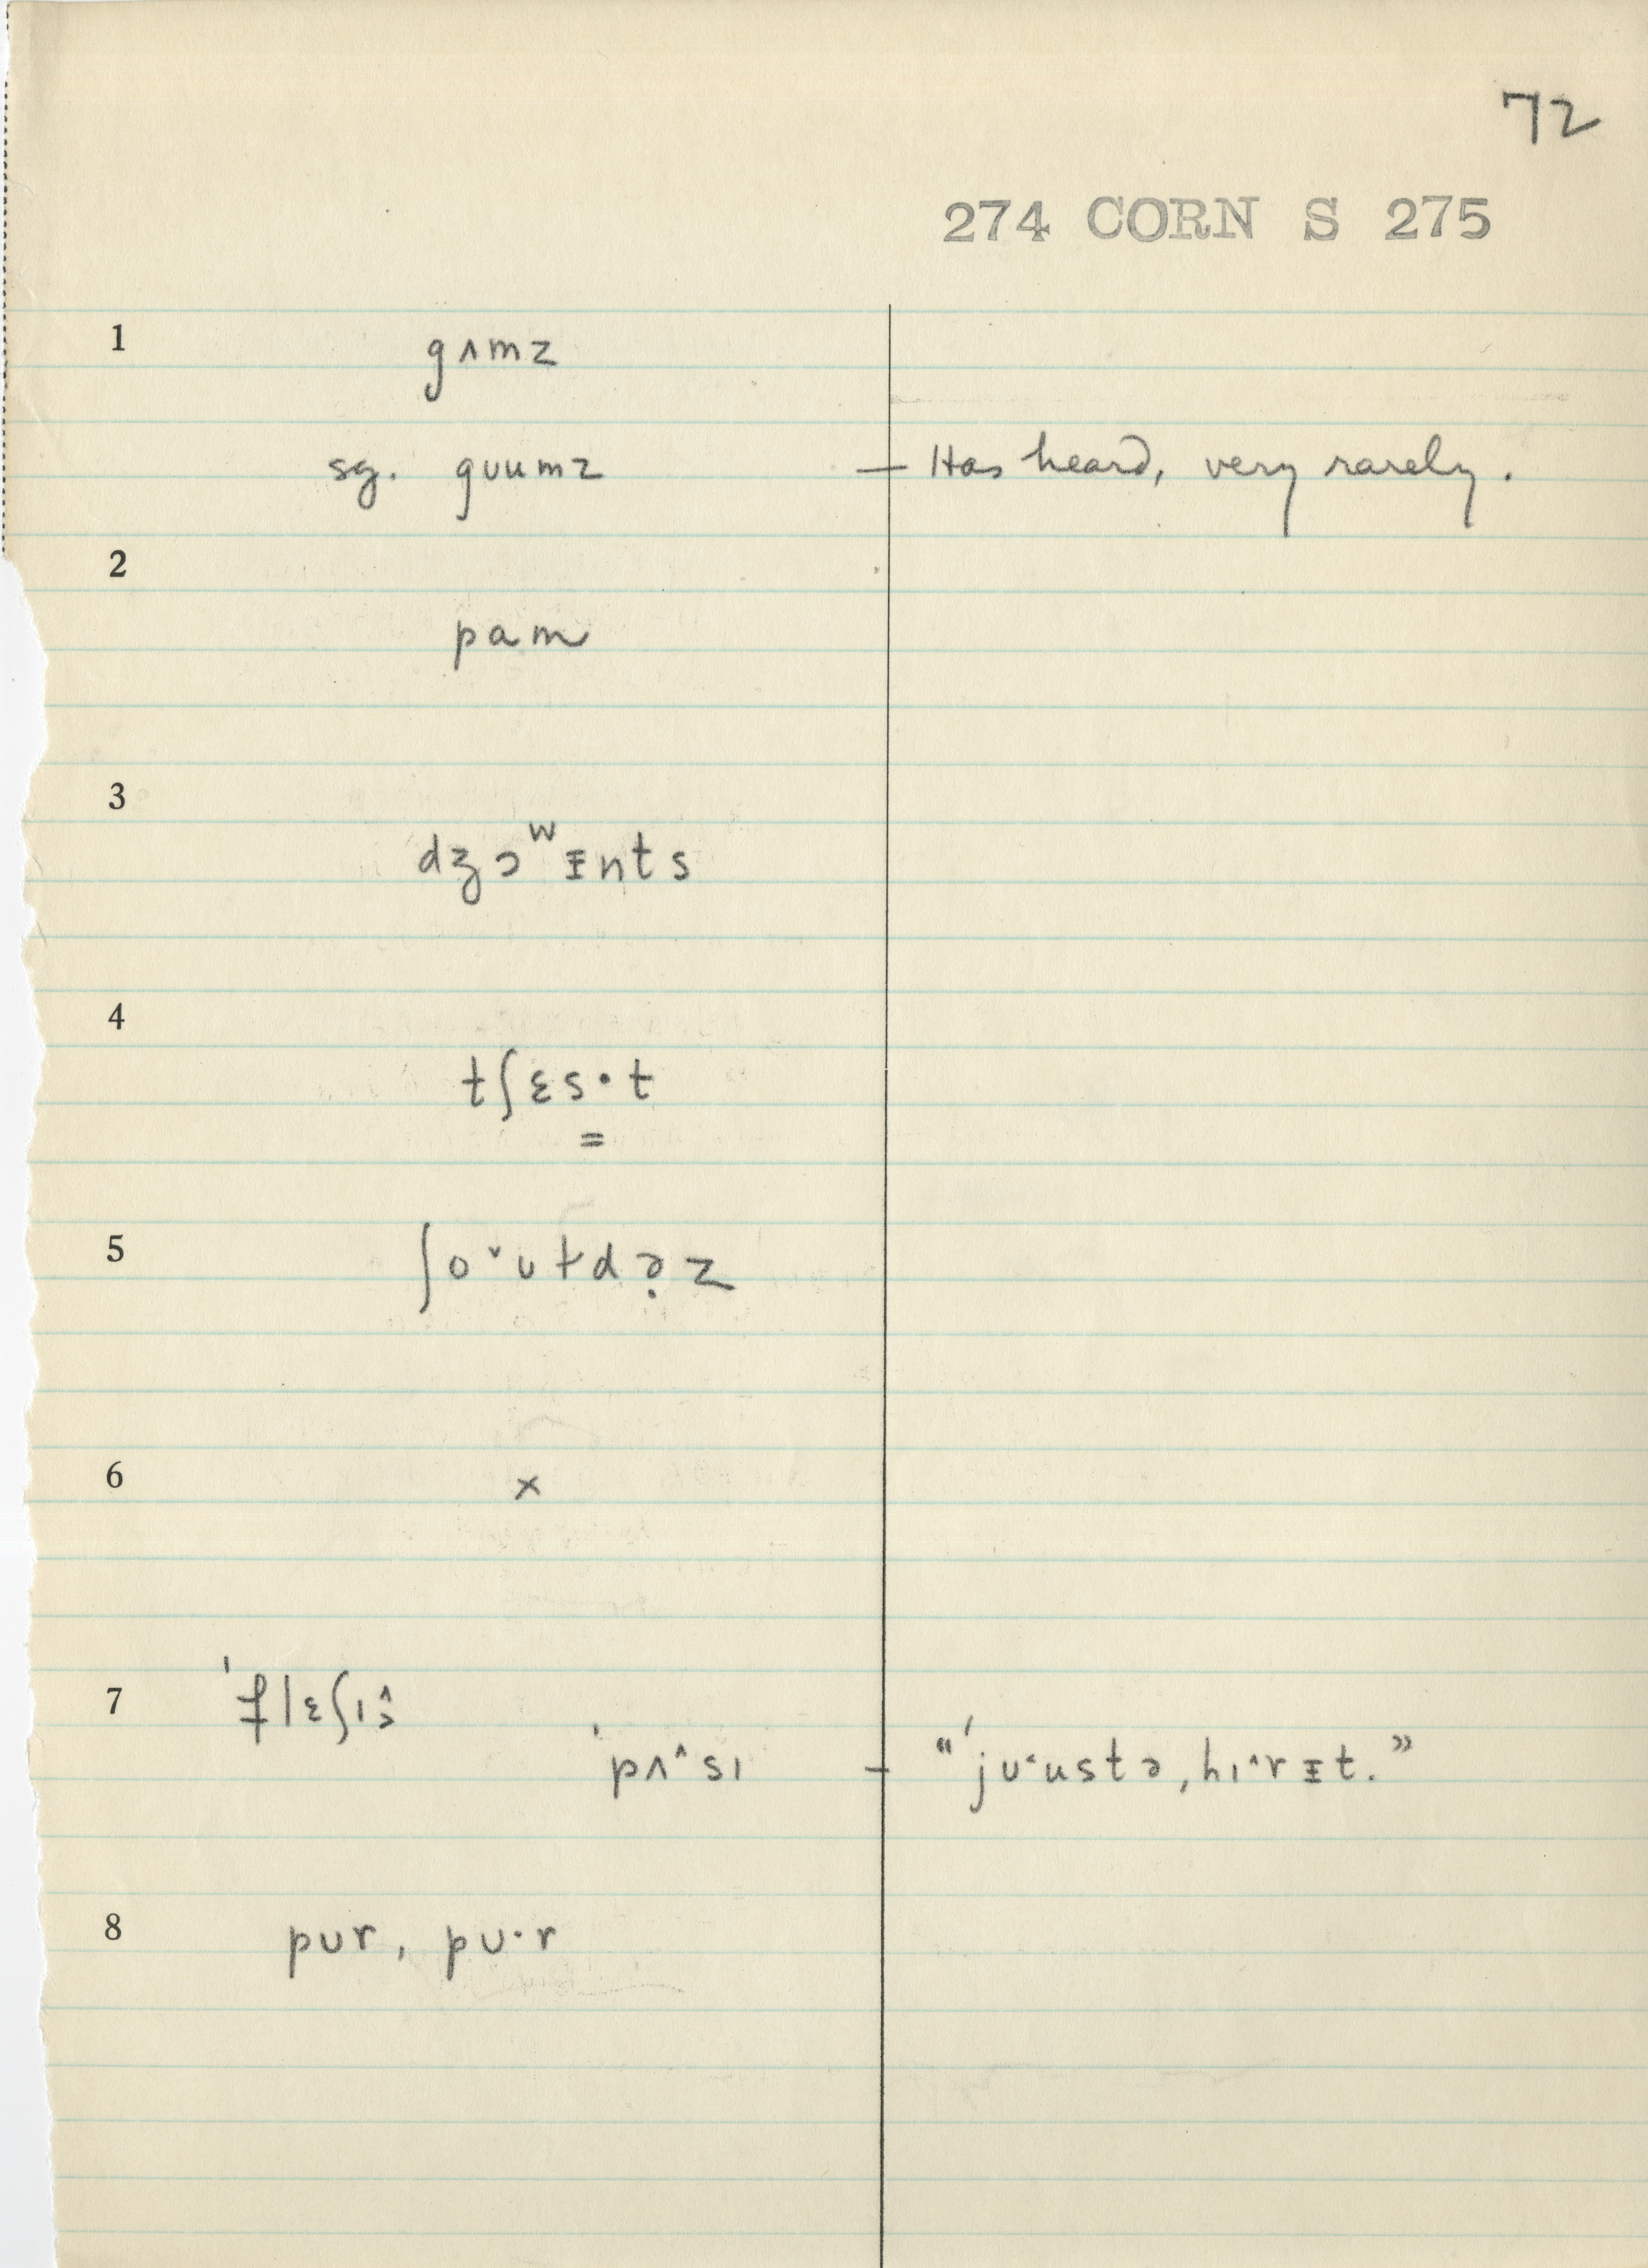 72
274 CORN S 275
1
gʌmz
sg. gᴜumz — Has heard, very rarely.
2
pam
3
dʒɔʷᵻnts
4
tʃɛs·t
=
5
ʃo˅ʊɫdə̣z
6
×
7
ˈflɛʃɪ
ˈpʌ˄sɪ — “ˈjʊ˂ustə, hɪ˄rᵻt.”
8
pʊr, pʊ·r